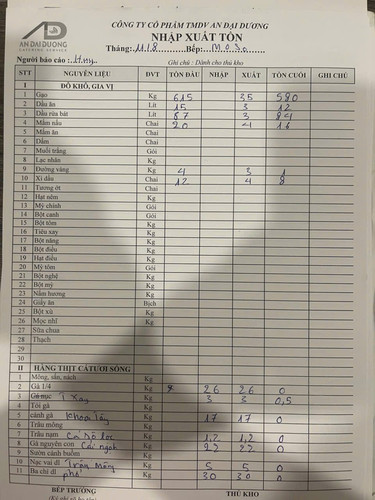 AN DAI DUONG
CATERING SERVICE
CÔNG TY CỔ PHẨM TMDV AN ĐẠI DƯƠNG
NHẬP XUẤT TỒN
Tháng: 11/8 Bếp: M.O.3.0
Người báo cáo: Huy
Ghi chú : Dành cho thủ kho
STT NGUYÊN LIỆU ĐVT TỒN ĐẦU NHẬP XUẤT TỒN CUỐI GHI CHÚ
I ĐỒ KHÔ, GIA VỊ
1 Gạo Kg 615 35 580
2 Dầu ăn Lít 15 3 12
3 Dầu rửa bát Lít 87 3 84
4 Mắm nấu Chai 20 4 16
5 Mắm ăn Chai
6 Dấm Chai
7 Muối trắng Gói
8 Lạc nhân Kg
9 Đường vàng Kg 4 3 1
10 Xì dầu Chai 12 4 8
11 Tương ớt Chai
12 Hạt nêm Kg
13 Mỳ chính Gói
14 Bột canh Gói
15 Bột tôm Kg
16 Tiêu xay Kg
17 Bột năng Kg
18 Bột điều Kg
19 Hạt điều Kg
20 Mỳ tôm Gói
21 Bột nghệ Kg
22 Bột mỳ Kg
23 Nấm hương Kg
24 Giấy ăn Bịch
25 Bột xù Kg
26 Mọc nhĩ Kg
27 Sữa chua
28 Thạch
29
30
II HÀNG THỊT CÁ TƯƠI SỐNG
1 Mông, sấn, nách Kg
2 Gà 1/4 Kg 26 26 0
3 T xay Kg 3 3 0,5
4 Tỏi gà Kg
5 cánh gà khoai tây Kg 17 17 0
6 Trâu mông Kg
7 Trâu nạm Kg 1,2 1,2 0
8 Gà nguyên con Cải ngọt Kg 22 22 0
9 Sườn cánh buồm Kg
10 Nạc vai dỉ Trâu mông Kg 5 5 0
11 Ba chỉ dỉ phở Kg 30 30 0
BẾP TRƯỞNG THỦ KHO